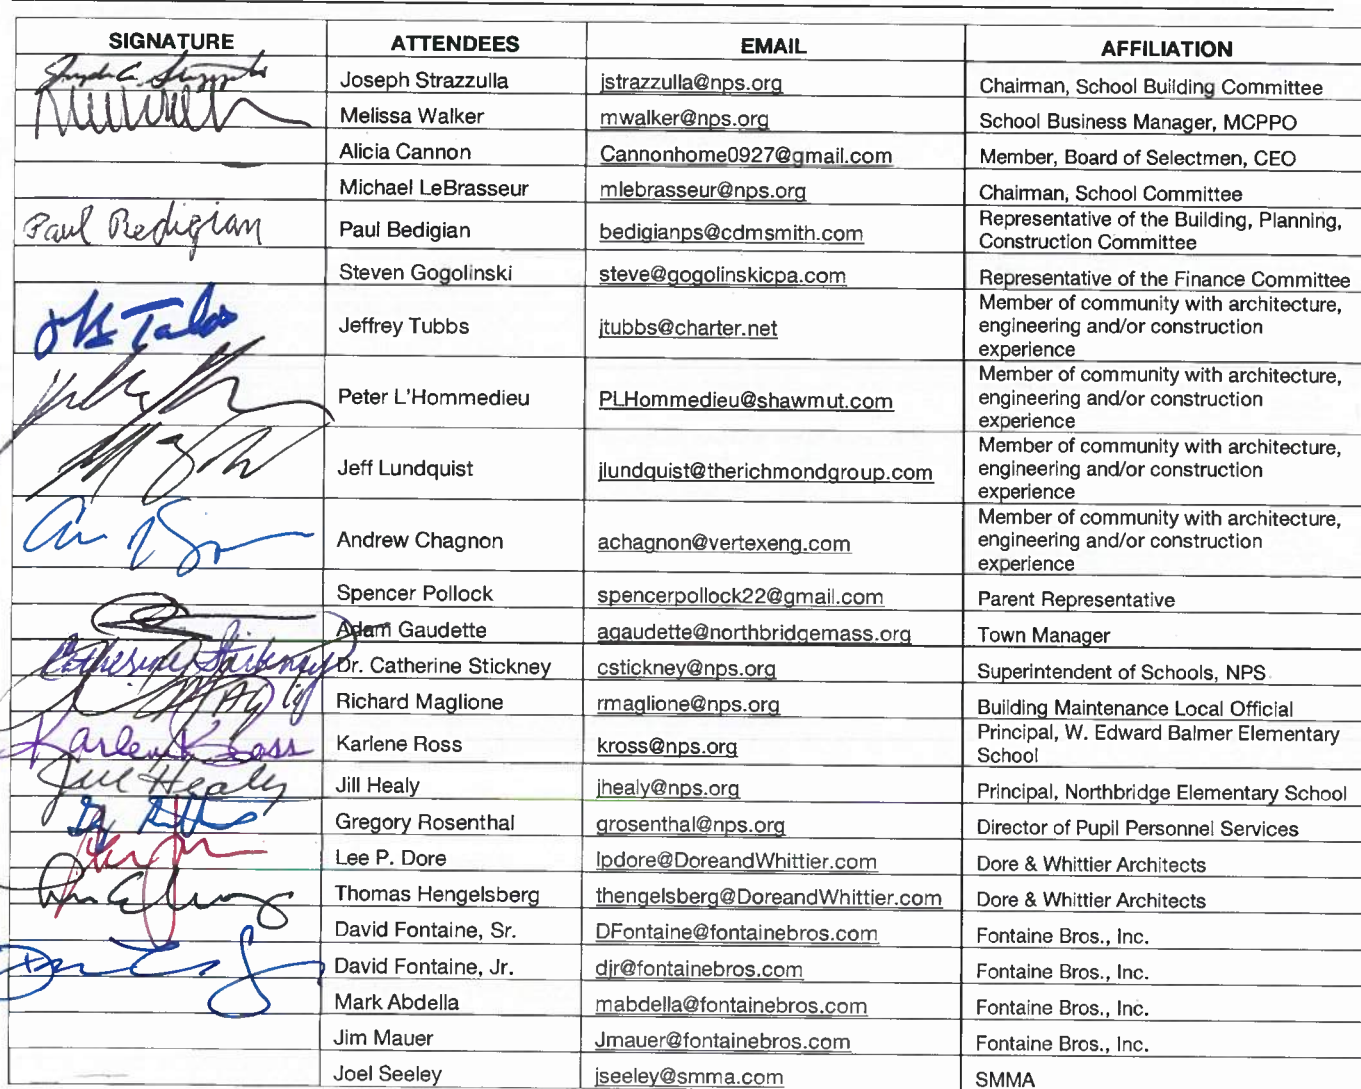 SIGNATURE ATTENDEES EMAIL AFFILIATION
Joseph Strazzulla jstrazzulla@nps.org Chairman, School Building Committee
Melissa Walker mwalker@nps.org School Business Manager, MCPPO
Alicia Cannon Cannonhome0927@gmail.com Member, Board of Selectmen, CEO
Michael LeBrasseur mlebrasseur@nps.org Chairman, School Committee
Paul Bedigian Paul Bedigian bedigianps@cdmsmith.com Representative of the Building, Planning,
Construction Committee
Steven Gogolinski steve@gogolinskicpa.com Representative of the Finance Committee
Jeffrey Tubbs jtubbs@charter.net Member of community with architecture,
engineering and/or construction
experience
Peter L'Hommedieu PLHommedieu@shawmut.com Member of community with architecture,
engineering and/or construction
experience
Jeff Lundquist jlundquist@therichmondgroup.com Member of community with architecture,
engineering and/or construction
experience
Andrew Chagnon achagnon@vertexeng.com Member of community with architecture,
engineering and/or construction
experience
Spencer Pollock spencerpollock22@gmail.com Parent Representative
Adam Gaudette agaudette@northbridgemass.org Town Manager
Catherine Stickney Dr. Catherine Stickney cstickney@nps.org Superintendent of Schools, NPS
Richard Maglione rmaglione@nps.org Building Maintenance Local Official
Karlene Ross Karlene Ross kross@nps.org Principal, W. Edward Balmer Elementary
School
Jill Healy Jill Healy jhealy@nps.org Principal, Northbridge Elementary School
Gregory Rosenthal grosenthal@nps.org Director of Pupil Personnel Services
Lee P. Dore lpdore@DoreandWhittier.com Dore & Whittier Architects
Thomas Hengelsberg thengelsberg@DoreandWhittier.com Dore & Whittier Architects
David Fontaine, Sr. DFontaine@fontainebros.com Fontaine Bros., Inc.
David Fontaine, Jr. djr@fontainebros.com Fontaine Bros., Inc.
Mark Abdella mabdella@fontainebros.com Fontaine Bros., Inc.
Jim Mauer Jmauer@fontainebros.com Fontaine Bros., Inc.
Joel Seeley jseeley@smma.com SMMA